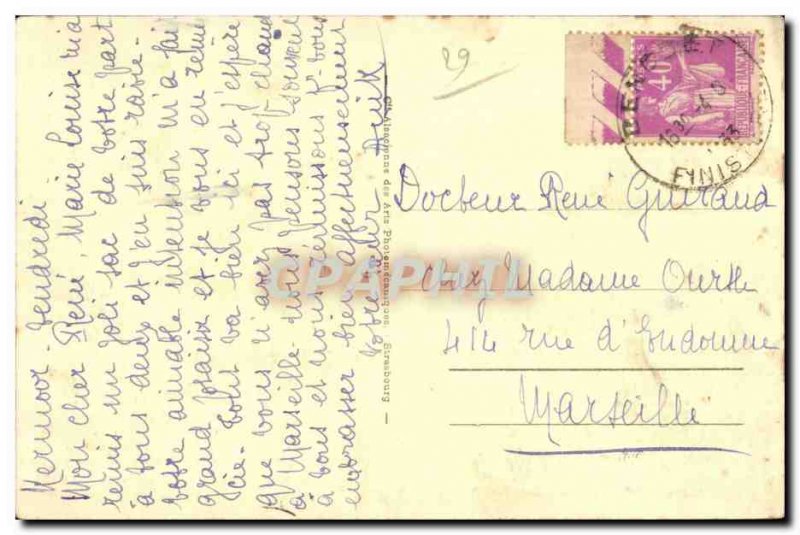 Kermoor - Vendredi
Mon cher René, Marie Louise m'a
remis un joli sac de votre part
à tous deux et j'en suis ravie
votre aimable intention m'a fait
grand plaisir et je vous en remer
cie. Tout va bien ici et j'espère
que vous n'avez pas trop chaud
à Marseille. Nous pensons souvent
à vous et nous réunissons pr vous
embrasser bien affectueusement
Votre
Cie Alsacienne des Arts Photomécaniques - Strasbourg
29
40
REPUBLIQUE FRANCAISE
BENODET
16 30
FINIST
Docteur René Guiraud
chez Madame
414 rue d'Endoume
Marseille
CPAPHIL